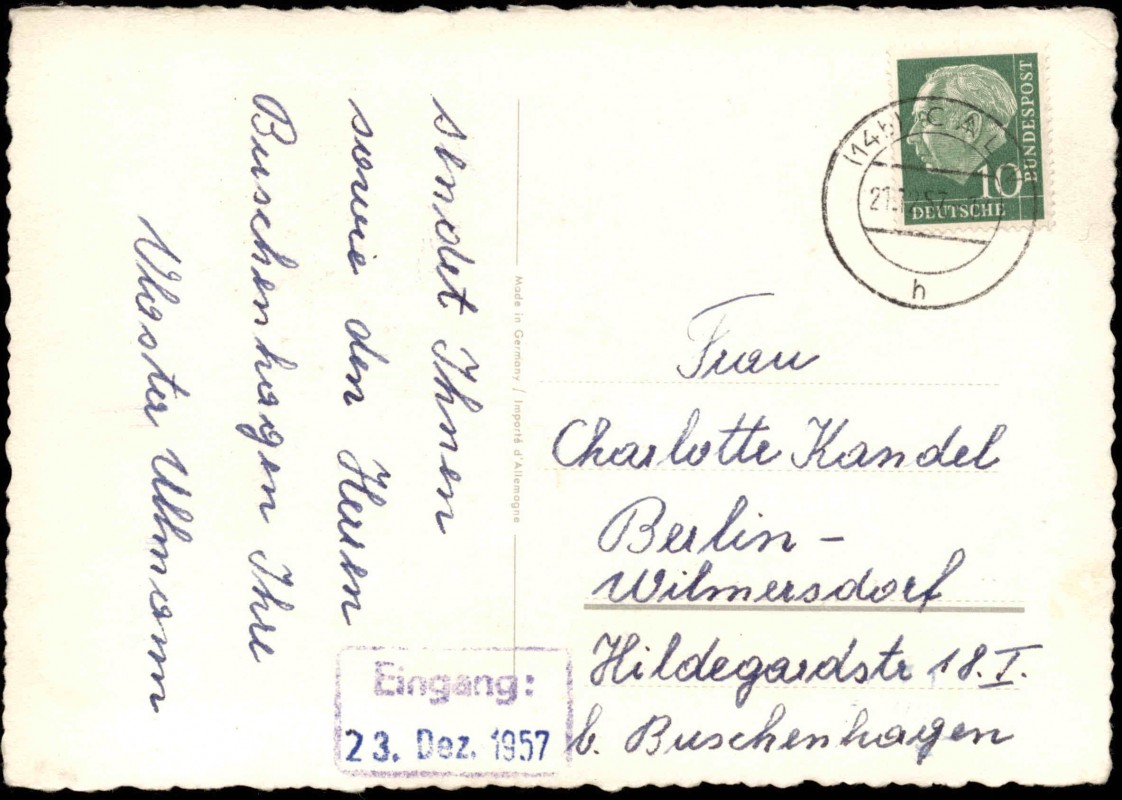 sendet Ihnen
sowie den Herren
Buschenhagen Ihre
Ullmann
Made in Germany / Importé d'Allemagne
BUNDESPOST
10
DEUTSCHE
(14b) CAL
21.12.57
h
Frau
Charlotte Kandel
Berlin -
Wilmersdorf
Hildegardstr 18. I.
b. Buschenhagen
Eingang:
23. Dez. 1957